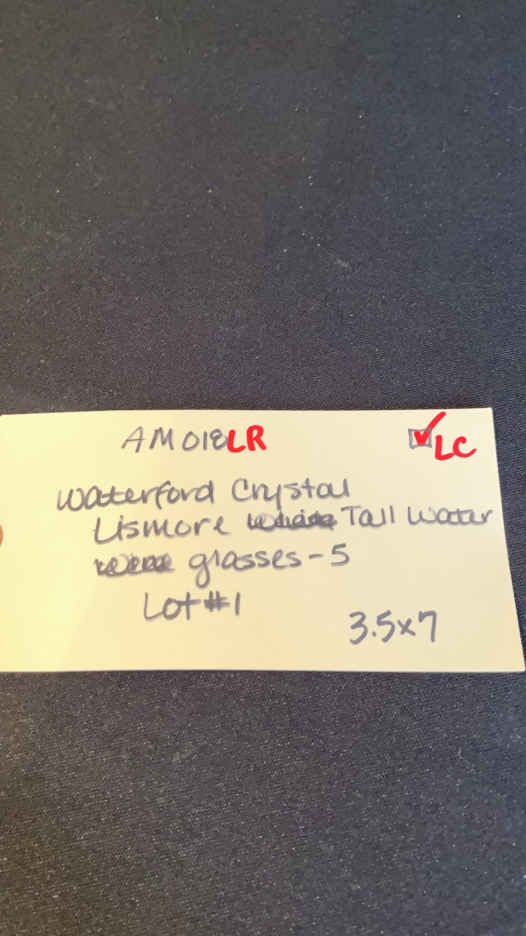 AM018LR
LC
Waterford Crystal
Lismore Tall Water
glasses-5
Lot#1
3.5x7